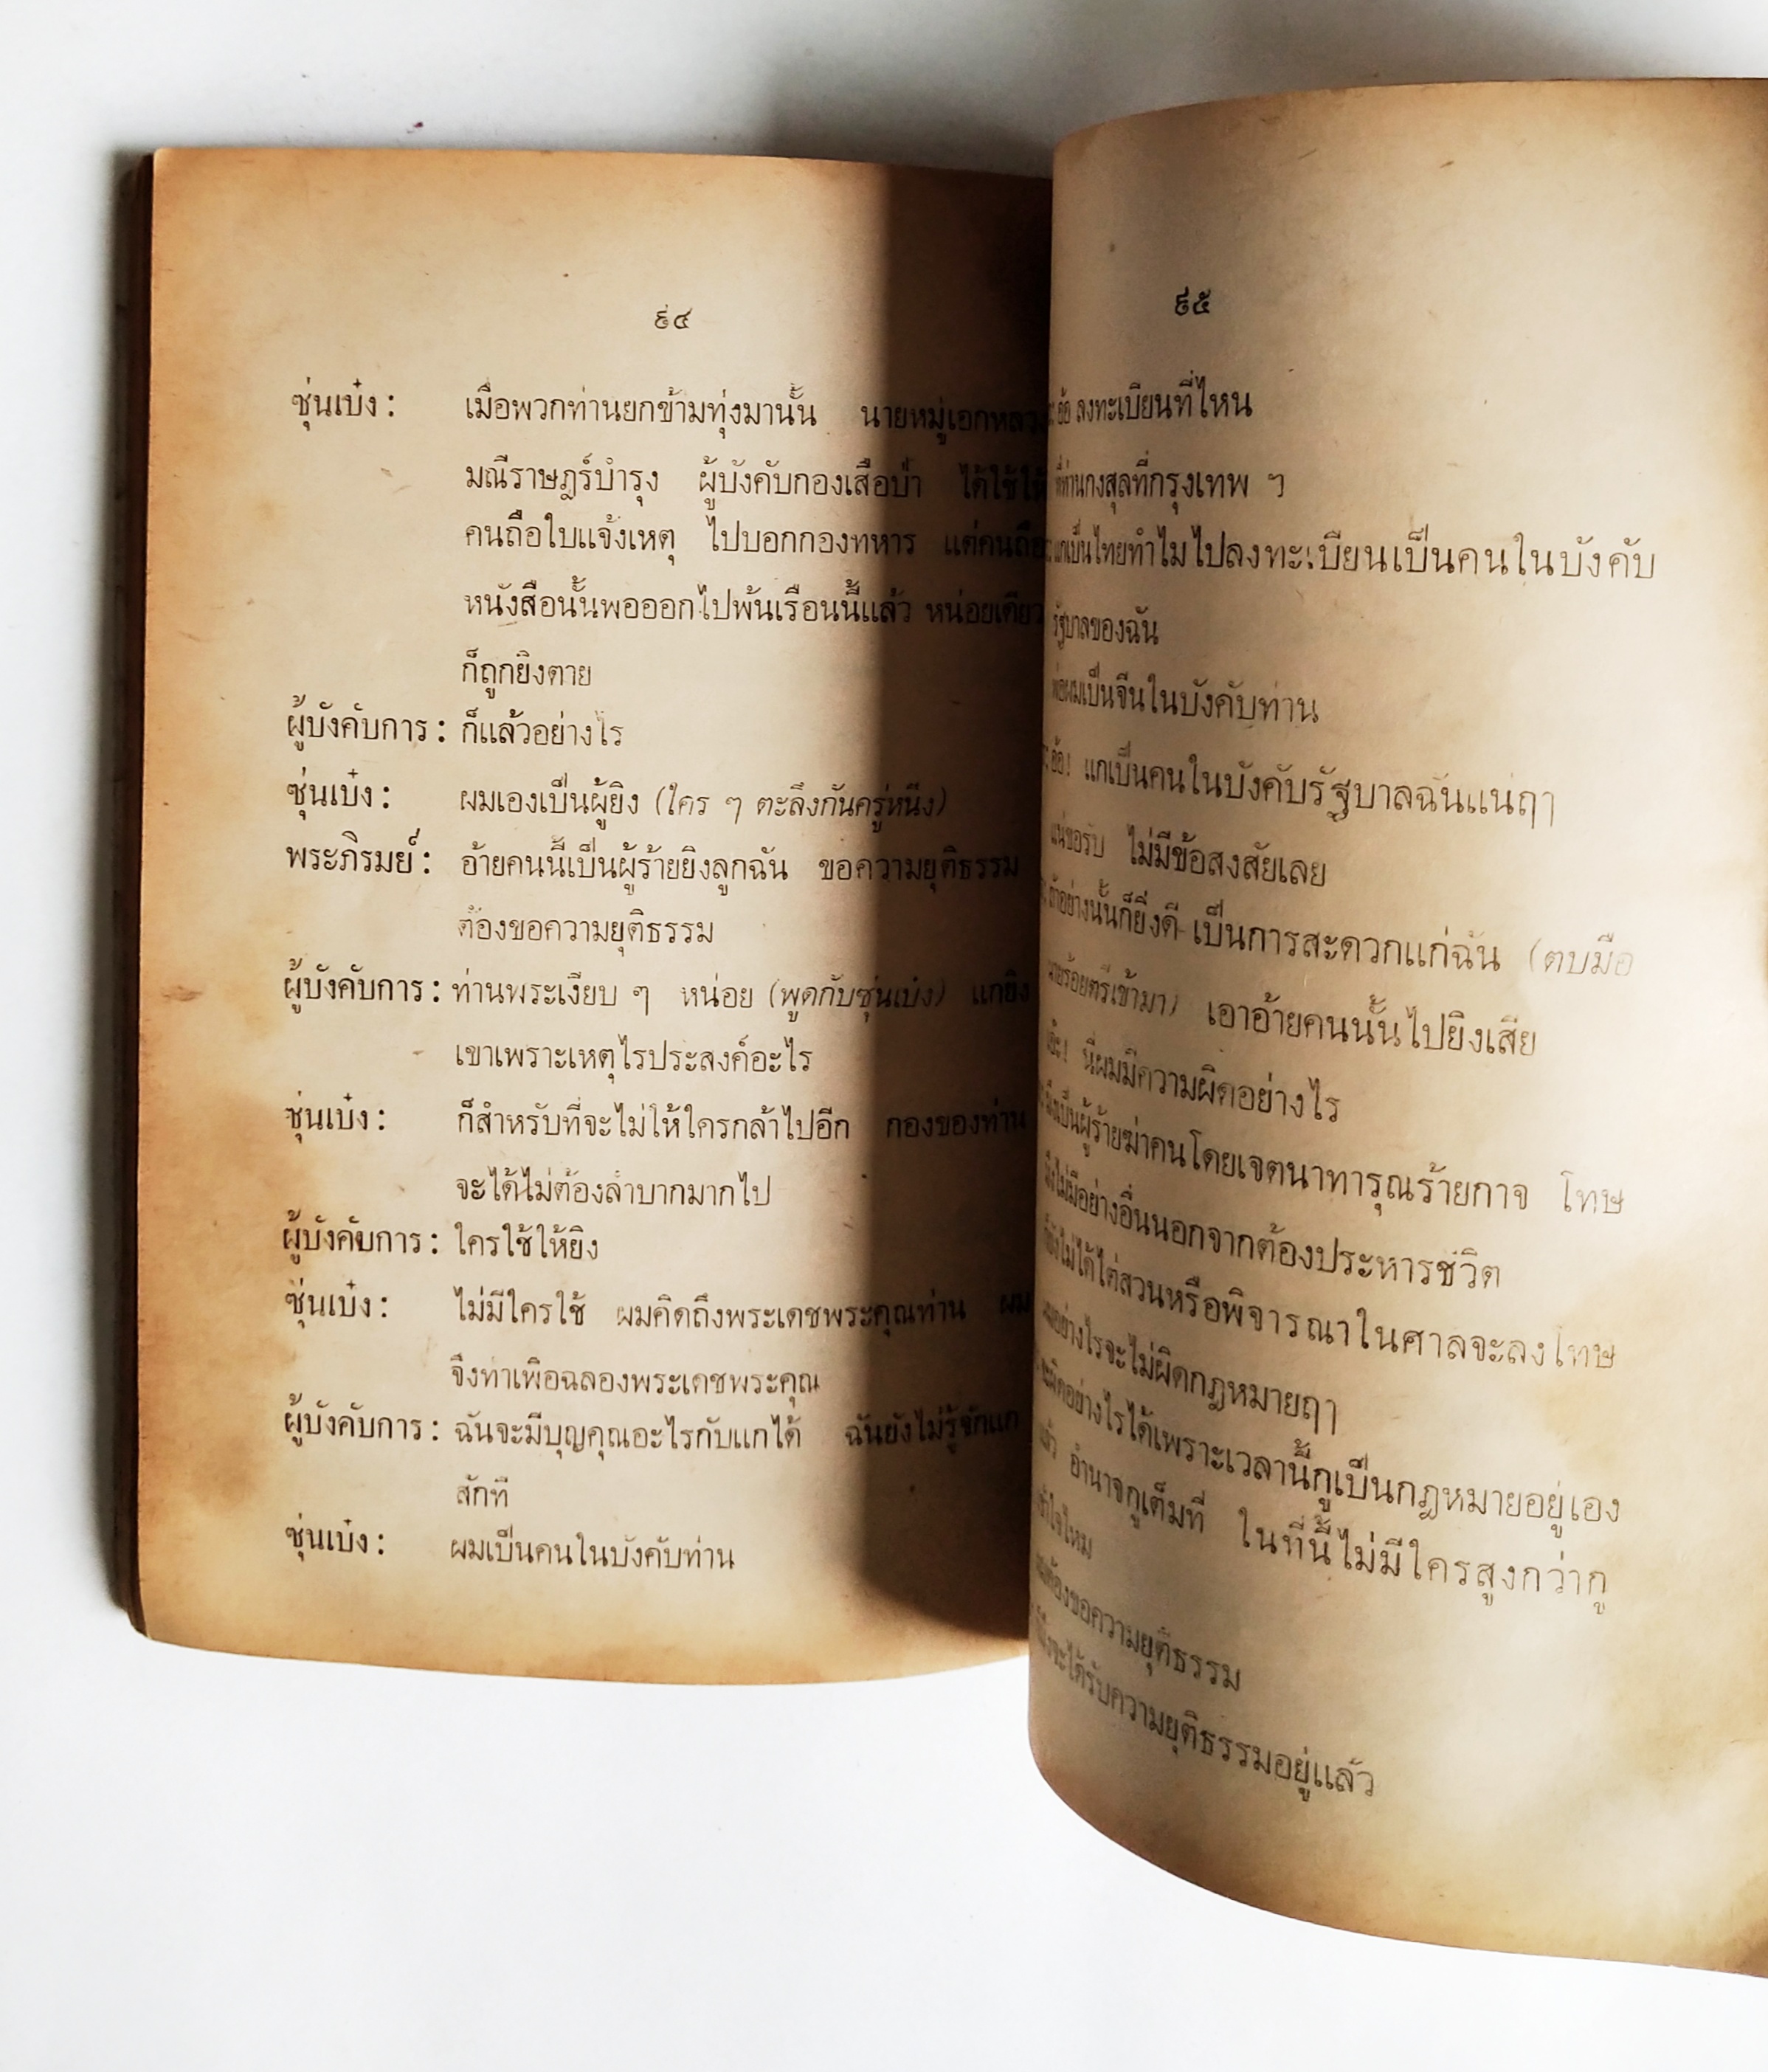 ๙๔
ซุ่นเบ๋ง : เมื่อพวกท่านยกข้ามทุ่งมานั้น นายหมู่เอกหลวง
มณีราษฎร์บำรุง ผู้บังคับกองเสือป่า ได้ใช้ให้
คนถือใบแจ้งเหตุ ไปบอกกองทหาร แต่คนถือ
หนังสือนั้นพอออกไปพ้นเรือนนี้แล้ว หน่อยเดียว
ก็ถูกยิงตาย
ผู้บังคับการ : ก็แล้วอย่างไร
ซุ่นเบ๋ง : ผมเองเป็นผู้ยิง (ใคร ๆ ตะลึงกันครู่หนึ่ง)
พระภิรมย์ : อ้ายคนนี้เป็นผู้ร้ายยิงลูกฉัน ขอความยุติธรรม
ต้องขอความยุติธรรม
ผู้บังคับการ : ท่านพระเงียบ ๆ หน่อย (พูดกับซุ่นเบ๋ง) แกยิง
เขาเพราะเหตุไรประสงค์อะไร
ซุ่นเบ๋ง : ก็สำหรับที่จะไม่ให้ใครกล้าไปอีก กองของท่าน
จะได้ไม่ต้องลำบากมากไป
ผู้บังคับการ : ใครใช้ให้ยิง
ซุ่นเบ๋ง : ไม่มีใครใช้ ผมคิดถึงพระเดชพระคุณท่าน ผม
จึงทำเพื่อฉลองพระเดชพระคุณ
ผู้บังคับการ : ฉันจะมีบุญคุณอะไรกับแกได้ ฉันยังไม่รู้จักแก
สักที
ซุ่นเบ๋ง : ผมเป็นคนในบังคับท่าน
๙๕
: ฮ้อ ลงทะเบียนที่ไหน
ที่ท่านกงสุลที่กรุงเทพ ฯ
: แกเป็นไทยทำไมไปลงทะเบียนเป็นคนในบังคับ
รัฐบาลของฉัน
พ่อผมเป็นจีนในบังคับท่าน
: ฮ้อ! แกเป็นคนในบังคับรัฐบาลฉันแน่ฤๅ
แน่ขอรับ ไม่มีข้อสงสัยเลย
: ถ้าอย่างนั้นก็ยิ่งดี เป็นการสะดวกแก่ฉัน (ตบมือ
นายร้อยตรีเข้ามา) เอาอ้ายคนนั้นไปยิงเสีย
เอ๊ะ! นี่ผมมีความผิดอย่างไร
มึงเป็นผู้ร้ายฆ่าคนโดยเจตนาทารุณร้ายกาจ โทษ
มึงไม่มีอย่างอื่นนอกจากต้องประหารชีวิต
ก็ยังไม่ได้ไต่สวนหรือพิจารณาในศาลจะลงโทษ
ผมอย่างไรจะไม่ผิดกฎหมายฤๅ
จะผิดอย่างไรได้เพราะเวลานี้กูเป็นกฎหมายอยู่เอง
แล้ว อำนาจกูเต็มที่ ในที่นี้ไม่มีใครสูงกว่ากู
เข้าใจไหม
ผมต้องขอความยุติธรรม
มึงจะได้รับความยุติธรรมอยู่แล้ว